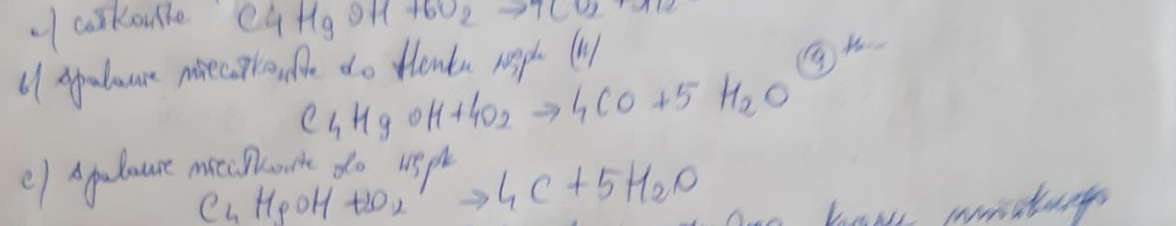 a) całkowite C4H9OH + 6O2 → 4CO2 + 5H2
b) spalanie niecałkowite do tlenku węgla (II)
C4H9OH + 4O2 → 4CO + 5 H2O
c) spalanie niecałkowite do węgla
C4H9OH + 2O2 → 4C + 5H2O